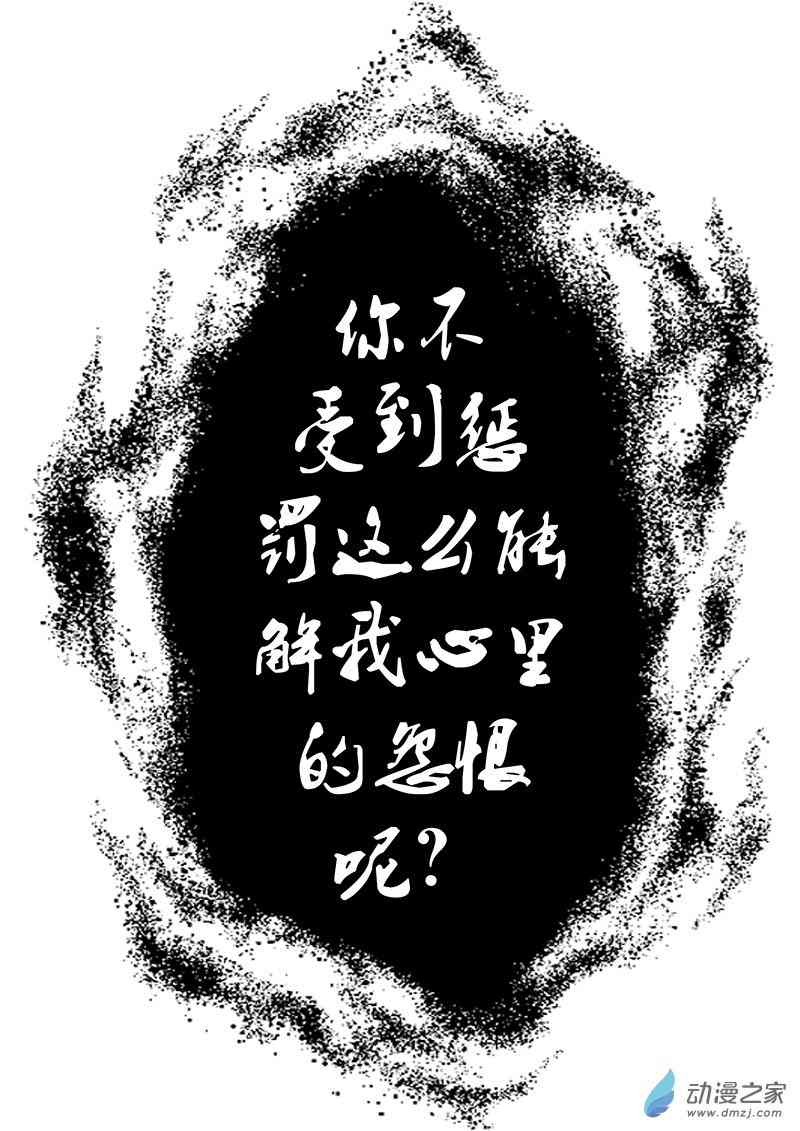 你不
受到惩
罚这么能
解我心里
的怨恨
呢?
动漫之家
www.dmzj.com